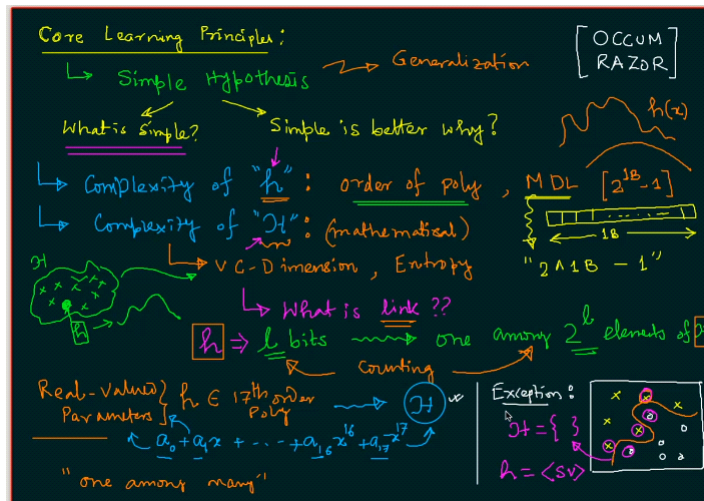 Core Learning Principles:
[OCCUM
RAZOR]
↳ Simple Hypothesis
Generalization
What is Simple?
Simple is better why?
h(x)
↳ Complexity of "h" : order of poly, MDL [2^{1B}-1]
↳ Complexity of "H" : (mathematical)
1B
"2∧1B - 1"
↳ VC-Dimension, Entropy
H
↳ What is link ??
h
h ⇒ l bits → one among 2^l elements of H
counting
Real-Valued
Parameters } h ∈ 17th order
poly → H
a_0 + a_1x + ... + a_16 x^16 + a_17 x^17
"one among many"
Exception:
H = { }
h = <SV>